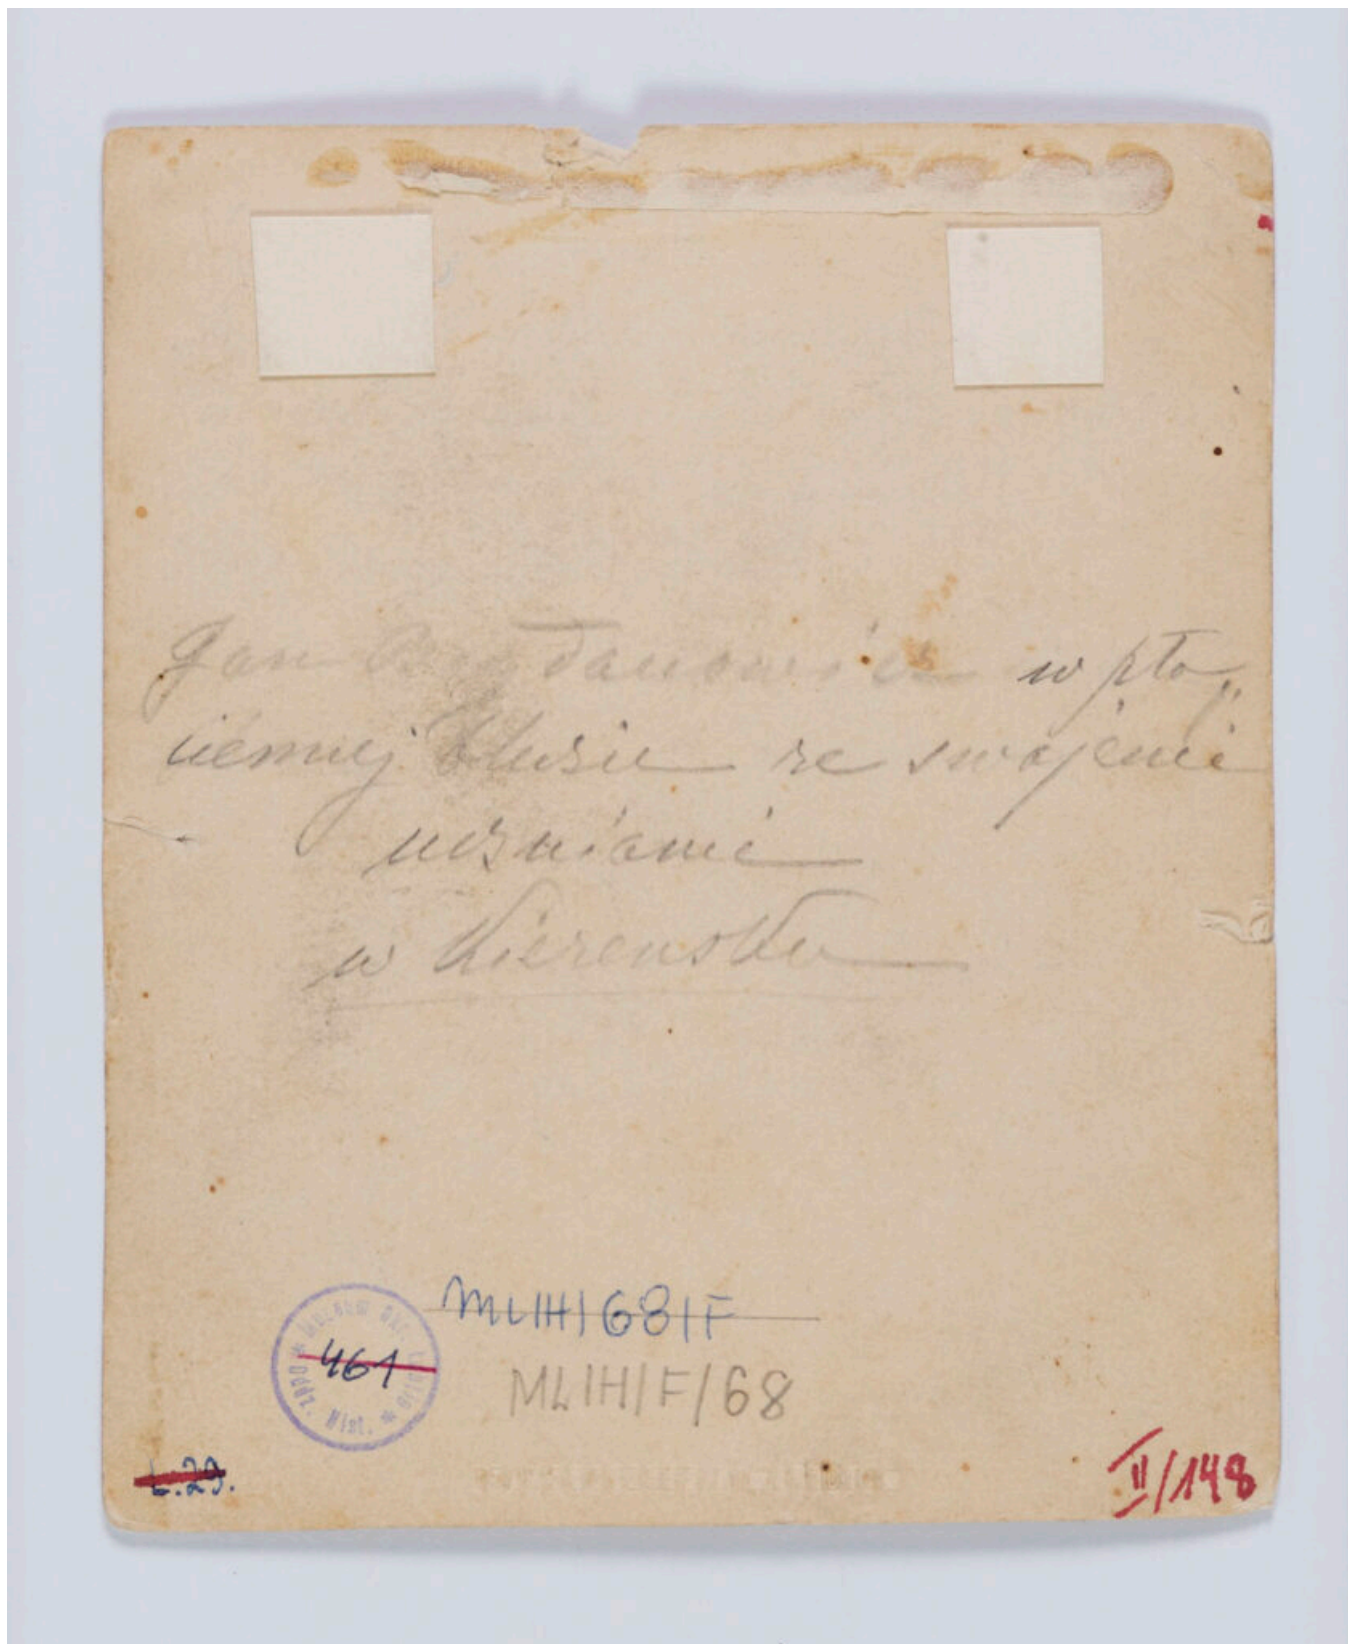 Jan Bogdanowicz w płó
ciennej bluzie ze swojemi
uczniami
w Kierensku
MLIHI68IF
MLIH/F/68
461
Oddz. Hist.
L.29.
II/148